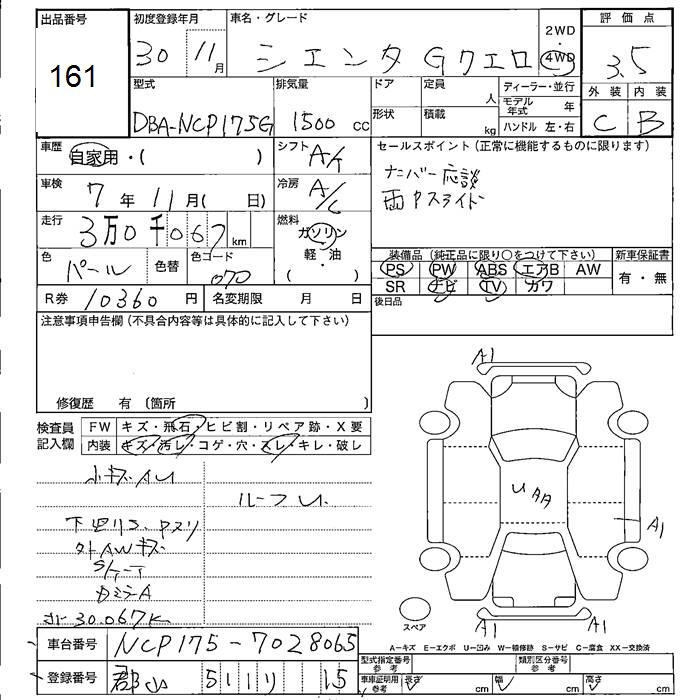 出品番号 初度登録年月 車名・グレード 2WD ・ 4WD 評価点
161 30 11月 シエンタ Gクエロ 3.5
型式 排気量 ドア 定員 人 ディーラー・並行 外装 内装
モデル年式 年
DBA-NCP175G 1500 cc 形状 積載 kg ハンドル 左・右 C B
車歴 自家用・( ) シフト A/T セールスポイント (正常に機能するものに限ります)
車検 7年 11月( 日) 冷房 A/C ナンバー応談
走行 3万0千067km 燃料 ガソリン 両Pスライド
軽・油
( ・ )
色 パール 色替 色コード 070 装備品 (純正品に限り○をつけて下さい) 新車保証書
PS PW ABS エアB AW 有・無
SR ナビ TV カワ
R券 10360円 名変期限 月 日 後日品
注意事項申告欄 (不具合内容等は具体的に記入して下さい)
修復歴 有 〔箇所 〕
検査員記入欄 FW キズ・飛石・ヒビ割・リペア跡・X要
内装 キズ・汚レ・コゲ・穴・スレ・キレ・破レ
小キズAU
ルーフU
下廻りS、Pスリ
外AWキズ
S/T-T
30.067K
A1
U AA
A1
A1 A1
スペア
A-キズ E-エクボ U-凹み W-補修跡 S-サビ C-腐食 XX-交換済
車台番号 NCP175-7028065
型式指定番号 参考 類別区分番号 参考
登録番号 郡山 511 り 15
車庫証明用 参考 長さ cm 幅 cm 高さ cm